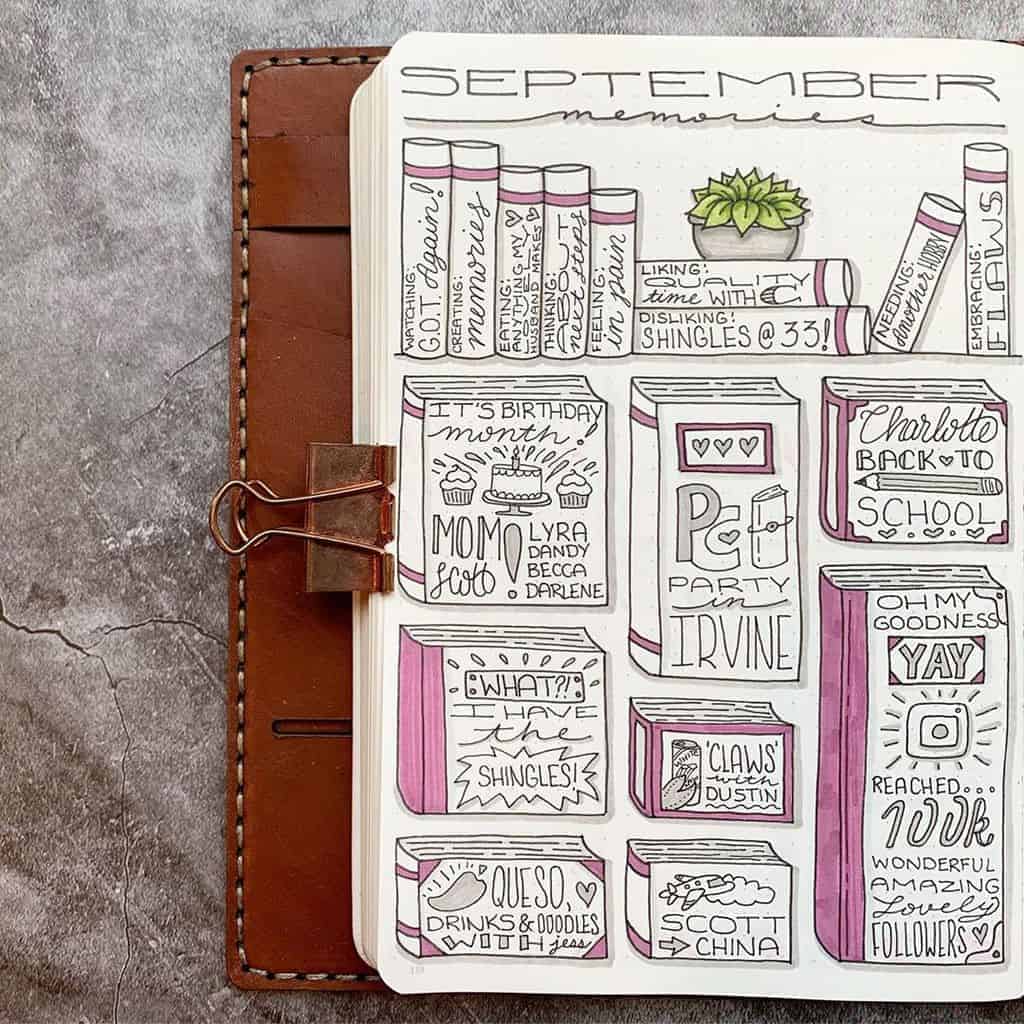 SEPTEMBER
memories
WATCHING:
G.O.T. Again!
CREATING:
memories
EATING:
ANYTHING MY
HUSBAND MAKES
THINKING:
ABOUT
next steps
FEELING:
in pain
LIKING: QUALITY
time WITH C
DISLIKING:
SHINGLES @ 33!
NEEDING:
Another HOBBY
EMBRACING:
FLAWS
IT'S BIRTHDAY
month!
MOM!
Scott
LYRA
DANDY
BECCA
DARLENE
WHAT?!
I HAVE
the
SHINGLES!
QUESO,
DRINKS & DOODLES
WITH jess
PARTY
in
IRVINE
'CLAWS'
with
DUSTIN
SCOTT
→ CHINA
Charlotte
BACK TO
SCHOOL
OH MY
GOODNESS
YAY
REACHED...
100k
WONDERFUL
AMAZING
Lovely
FOLLOWERS